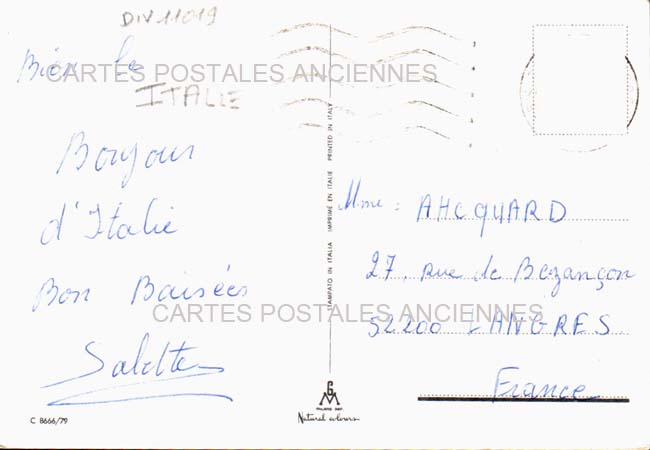 DIV 11019
Bien le
CARTES POSTALES ANCIENNES
ITALIE
Bonjour
d'Italie
Bon Baisées
Salette
C 8666/79
STAMPATO IN ITALIA IMPRIMÉ EN ITALIE PRINTED IN ITALY
GM
MILANO DEP.
Natural colours
Mme: AHCQUARD
27, rue de Bezançon
CARTES POSTALES ANCIENNES
52200 LANGRES
France